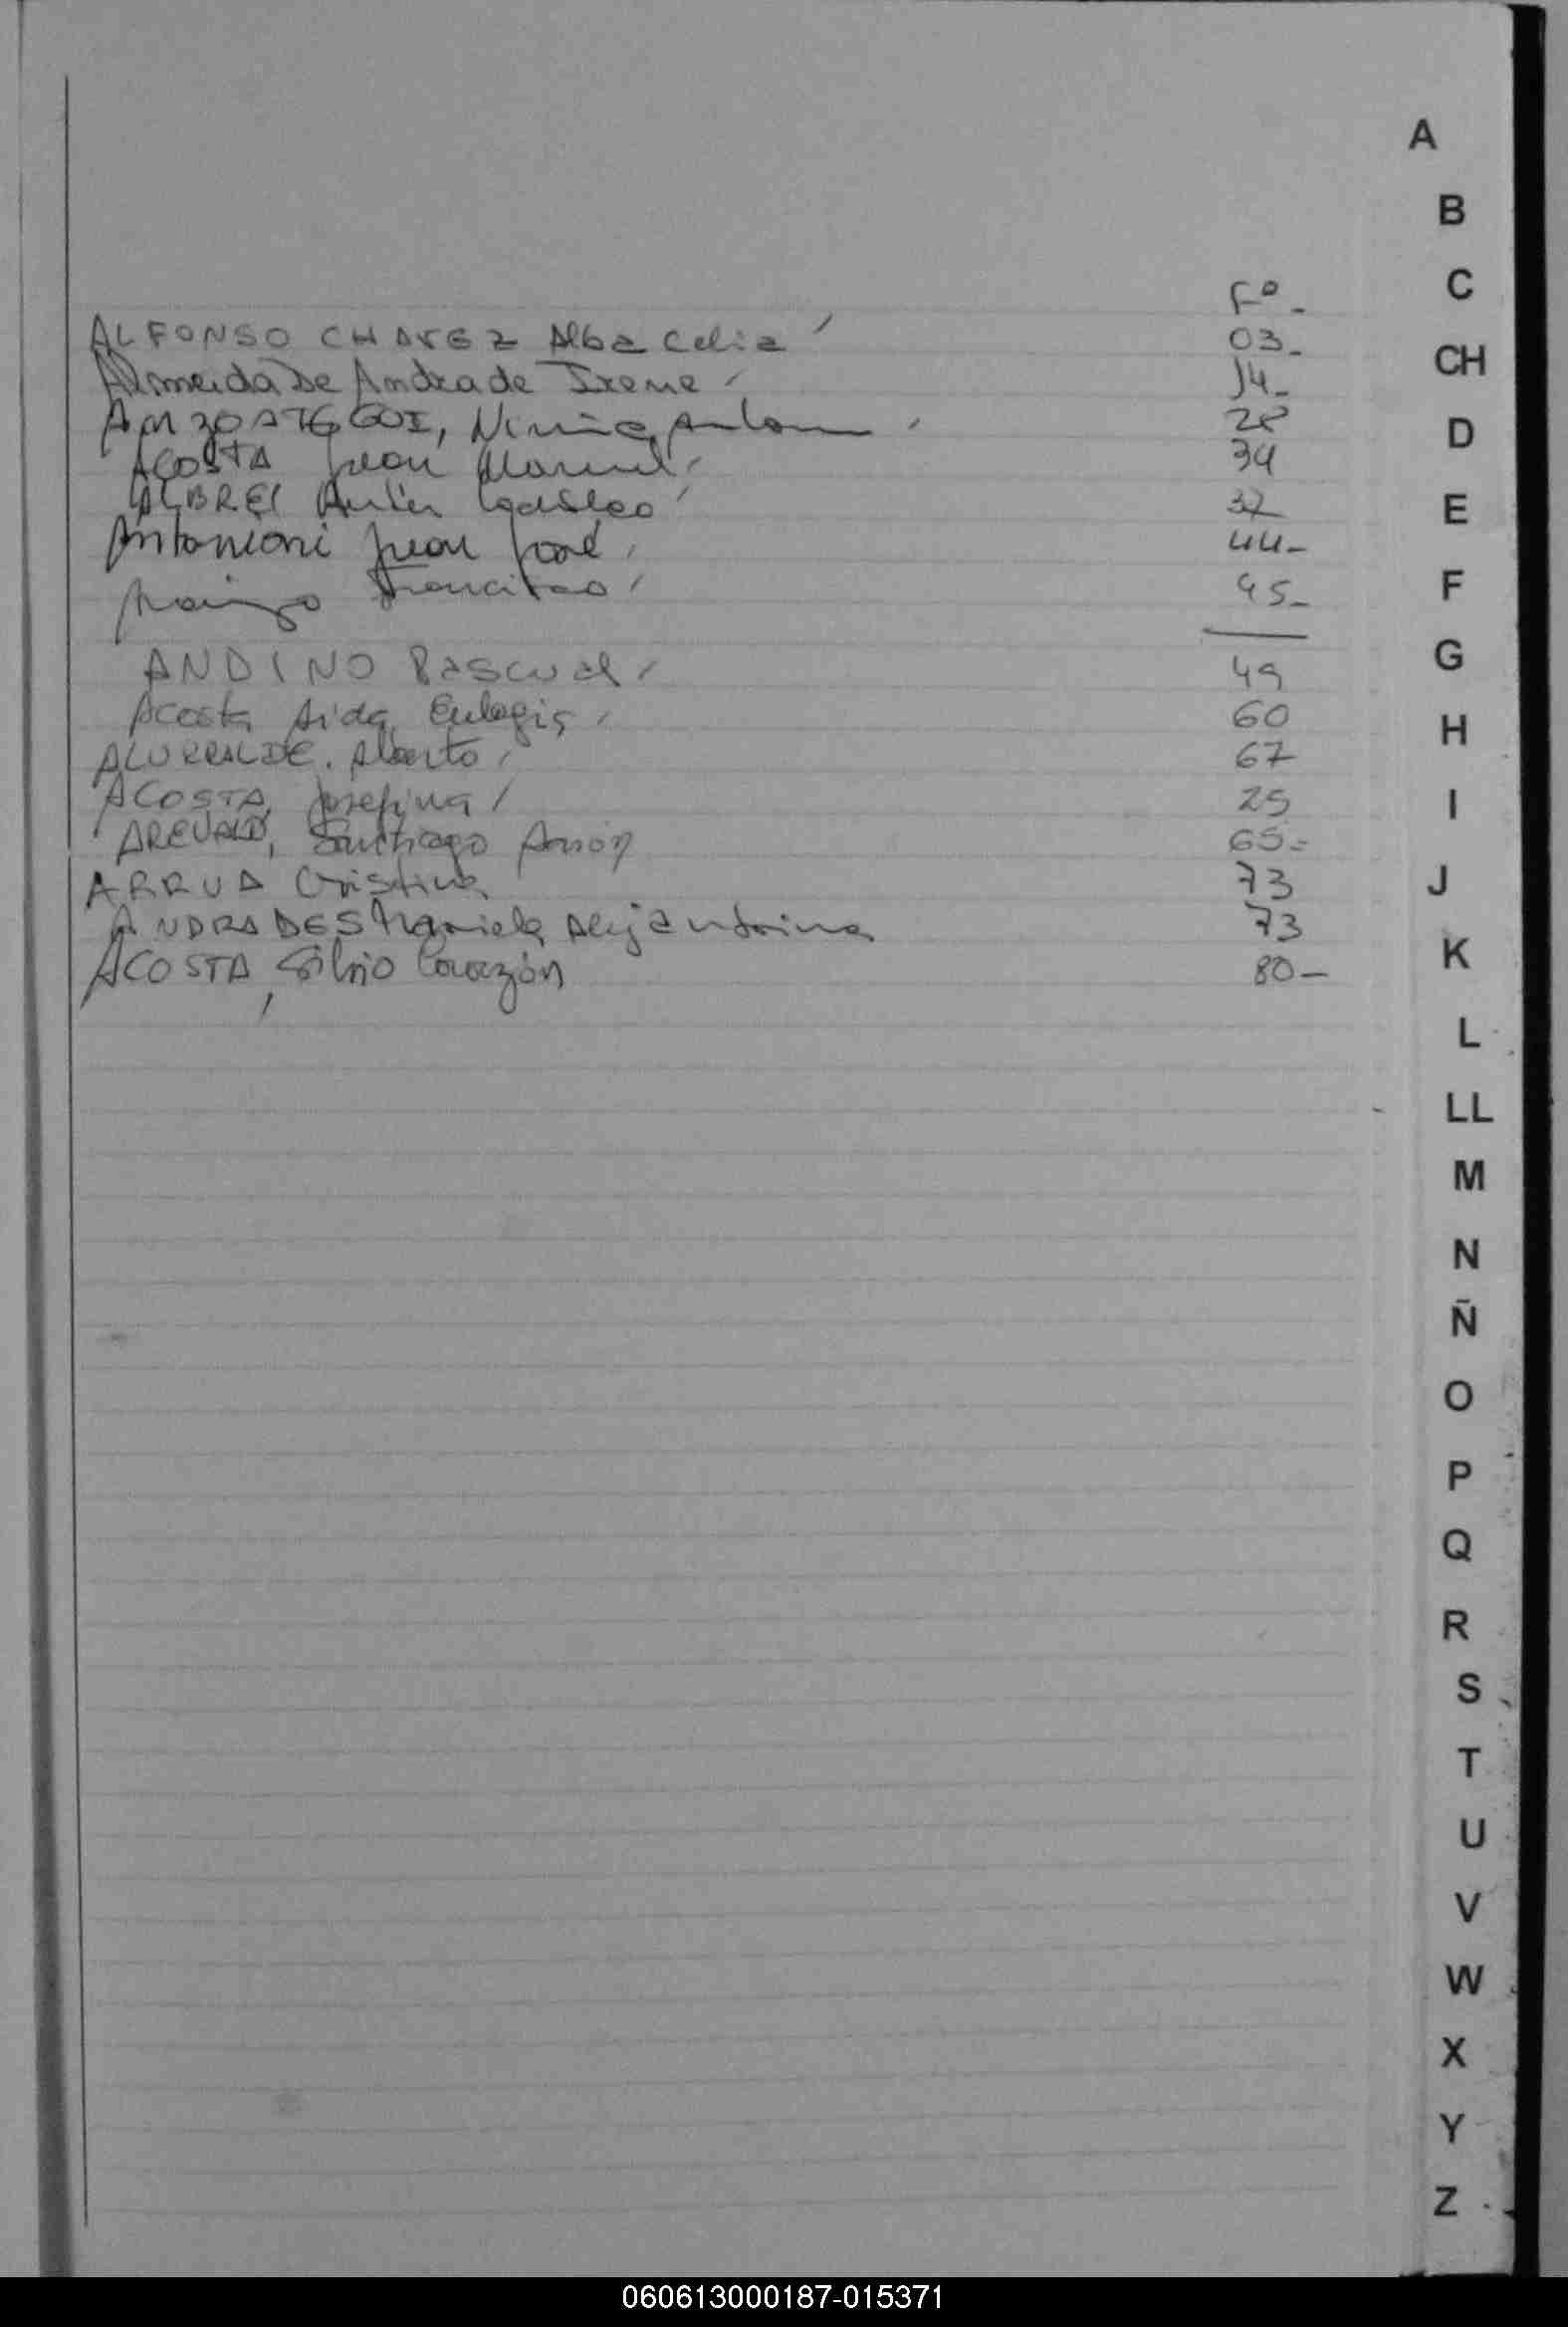 A
B
C
Fº-
ALFONSO CHAVEZ Alba Celia 03-
CH
Almeida De Andrade Irene 14-
ANZOATEGUI, 28
D
ACOSTA Juan Manuel 34
37
E
Antonioni Juan José 44-
Francisco 45-
F
G
ANDINO Pascual 49
Acosta Aida Eulogia 60
H
ALURRALDE. Alberto 67
ACOSTA, Josefina 25
I
AREVALO, Santiago Ramón 65-
ARRUA Cristina 73
J
ANDRADES Mariela Alejandrina 73
K
ACOSTA, Silvio Corazón 80-
L
LL
M
N
Ñ
O
P
Q
R
S
T
U
V
W
X
Y
Z
060613000187-015371